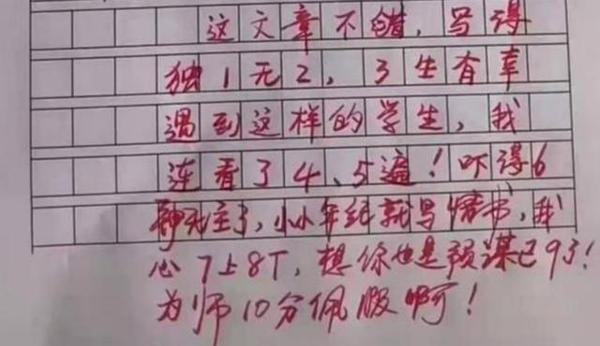 这文章不错,写得
独1无2,3生有幸
遇到这样的学生,我
连看了4、5遍!吓得6
神无主了,小小年纪就写情书,我
心7上8下,想你也是预谋已9了!
为师10分佩服啊!